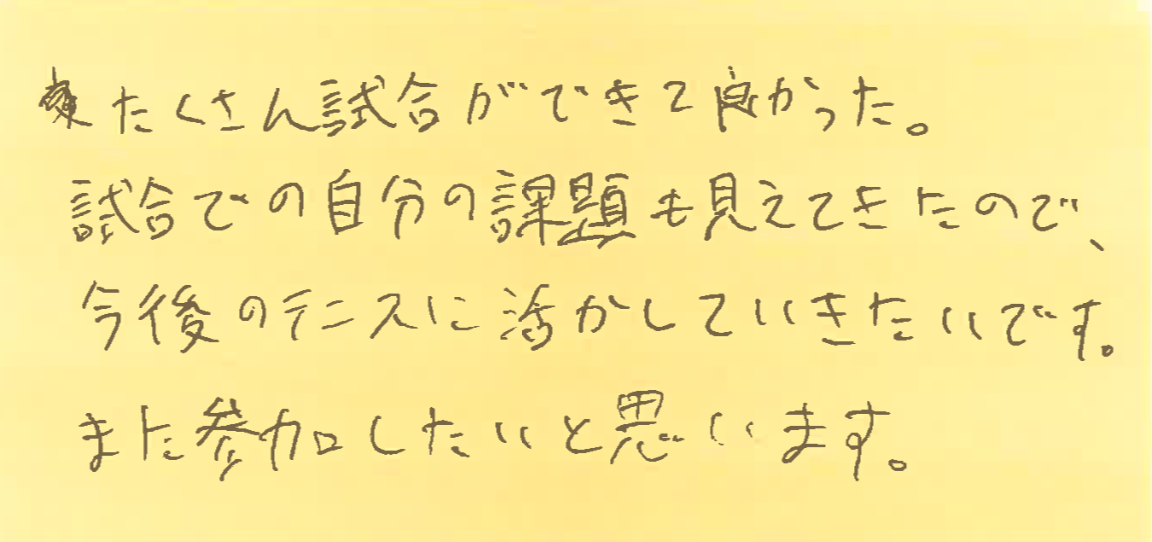 たくさん試合ができて良かった。
試合での自分の課題も見えてきたので、
今後のテニスに活かしていきたいです。
また参加したいと思います。